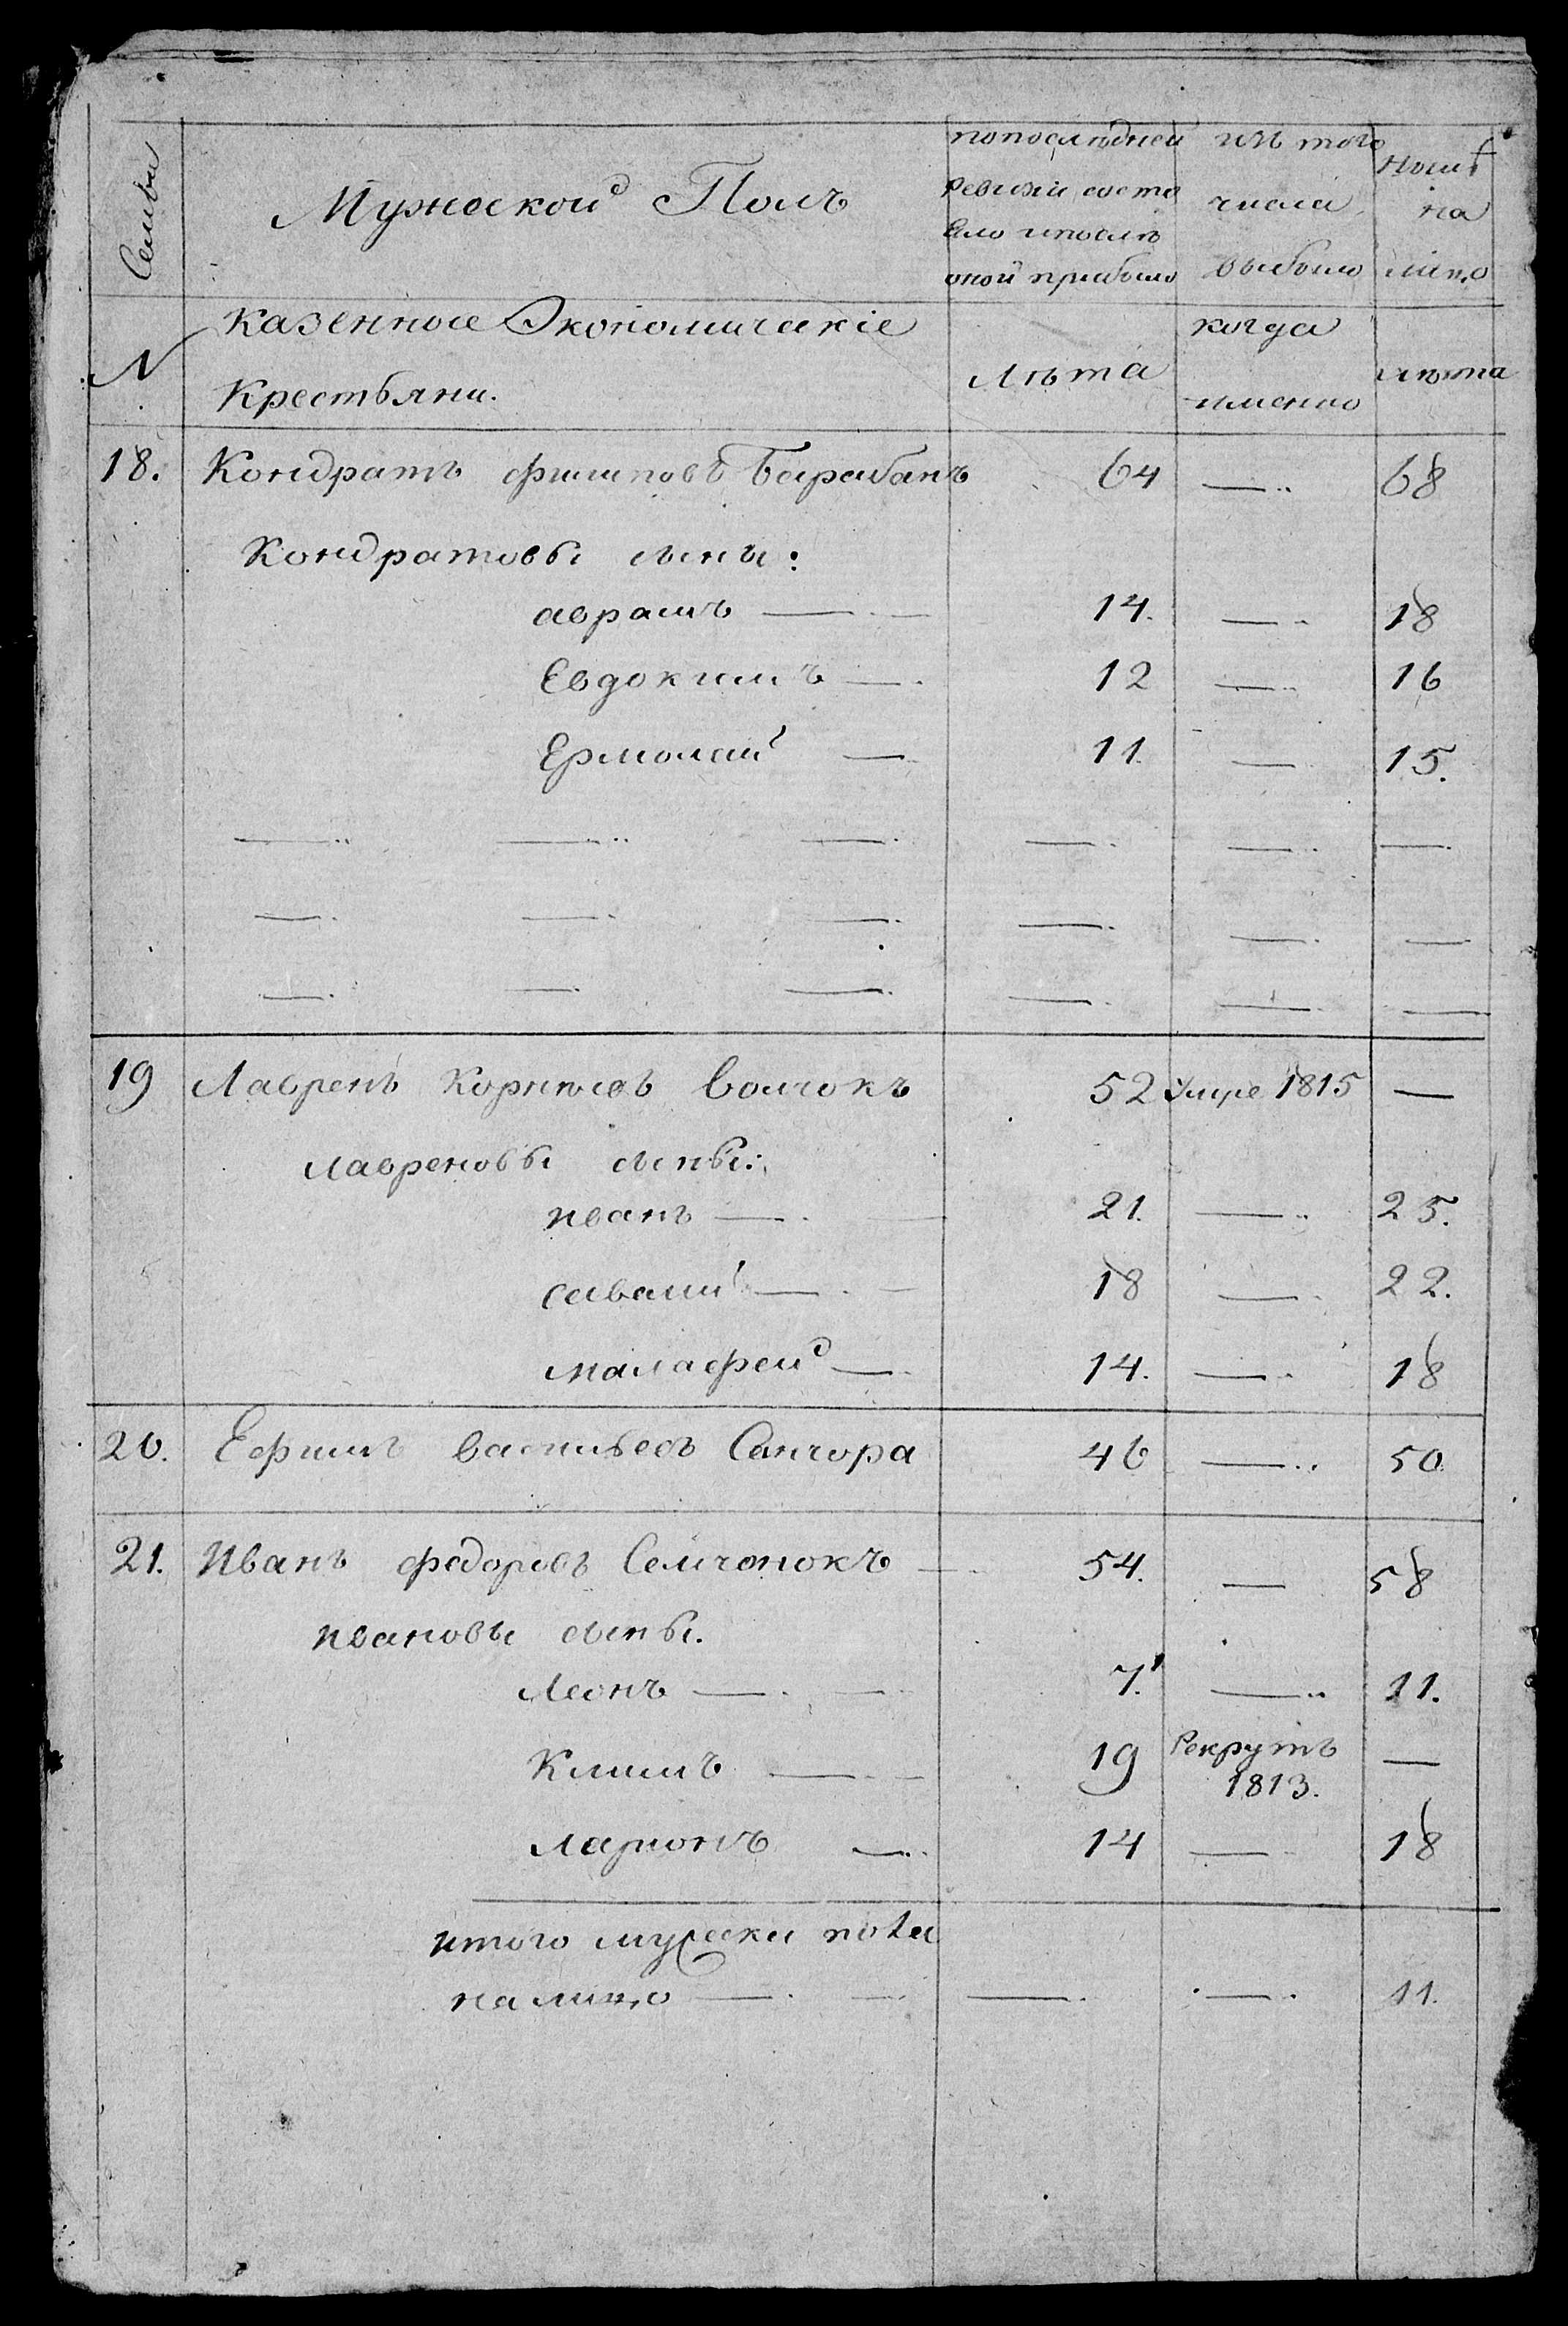 Семьи
Мужескои Полъ
попослѣдней
Ревизіи состо
Яло ипослѣ
оной прибыло
изъ того
числа
выбыло
Нынѣ
на
лицо
N
Казенные Экономическіе
Крестьяни.
Лѣта
когда
имено
лѣта
18. Кондратъ филиповъ Барабанъ 64 —.. 68
Кондратовы сыны:
аврамъ — — 14. —. 18
Евдокимъ —. 12 —.. 16
Ермолай — 11. — 15.
—.. —.. —. —. —. —.
—. —. —. —. —. —
—. —. —. —. —. —
19 Лавренъ Корнѣевъ Волчокъ 52 Умре 1815 —
лавреновы сыны:
иванъ —. — 21. —.. 25.
савелий —. — 18 —. 22.
малафей —. 14. —. 18
20. Ефимъ васильевъ Санчора 46 —.. 50
21. Иванъ федоровъ Семчонокъ — 54. — 58
ивановы сыны.
Леонъ —. — 7. —.. 11.
Климъ —. — 19 Рекрутъ 1813. —
Ларионъ —. 14 — 18
итого мужеска пола
налицо —. —. —. —. 11.